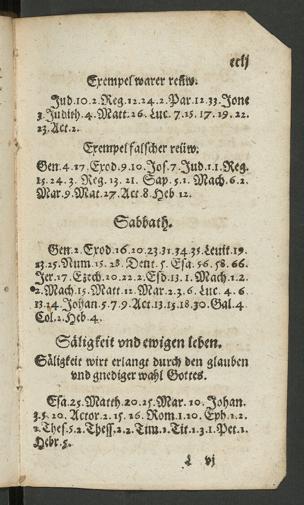 cclj
Exempel warer reüw.
Jud.10.2.Reg.12.24.2.Par.12.33.Jone
3.Judith.4.Matt.26.Luc.7.15.17.19.22.
23.Act.2.
Exempel falscher reüw.
Gen.4.17.Exod.9.10.Jos.7.Jud.1.1.Reg.
15.24.3.Reg.13.21.Sap.5.1.Mach.6.2.
Mar.9.Mat.27.Act.8.Heb 12.
Sabbath.
Gen.2.Exod.16.20.23.31.34.35.Leuit.19.
23.25.Num.15.28.Deut.5.Esa.56.58.66.
Jer.17.Ezech.20.22.2.Esd.13.1.Mach.1.2.
2.Mach.15.Matt.12.Mar.2.3.6.Luc.4.6.
13.14.Johan.5.7.9.Act.13.15.18.30.Gal.4.
Col.2.Heb.4.
Säligkeit vnd ewigen leben.
Säligkeit wirt erlangt durch den glauben
vnd gnediger wahl Gottes.
Esa.25.Matth.20.25.Mar.10.Johan.
3.5.20.Actor.2.15.26.Rom.1.10.Eph.1.2.
2.Thes.5.2.Thess.2.2.Tim.1.Tit.1.3.1.Pet.1.
Hebr.5.
vj